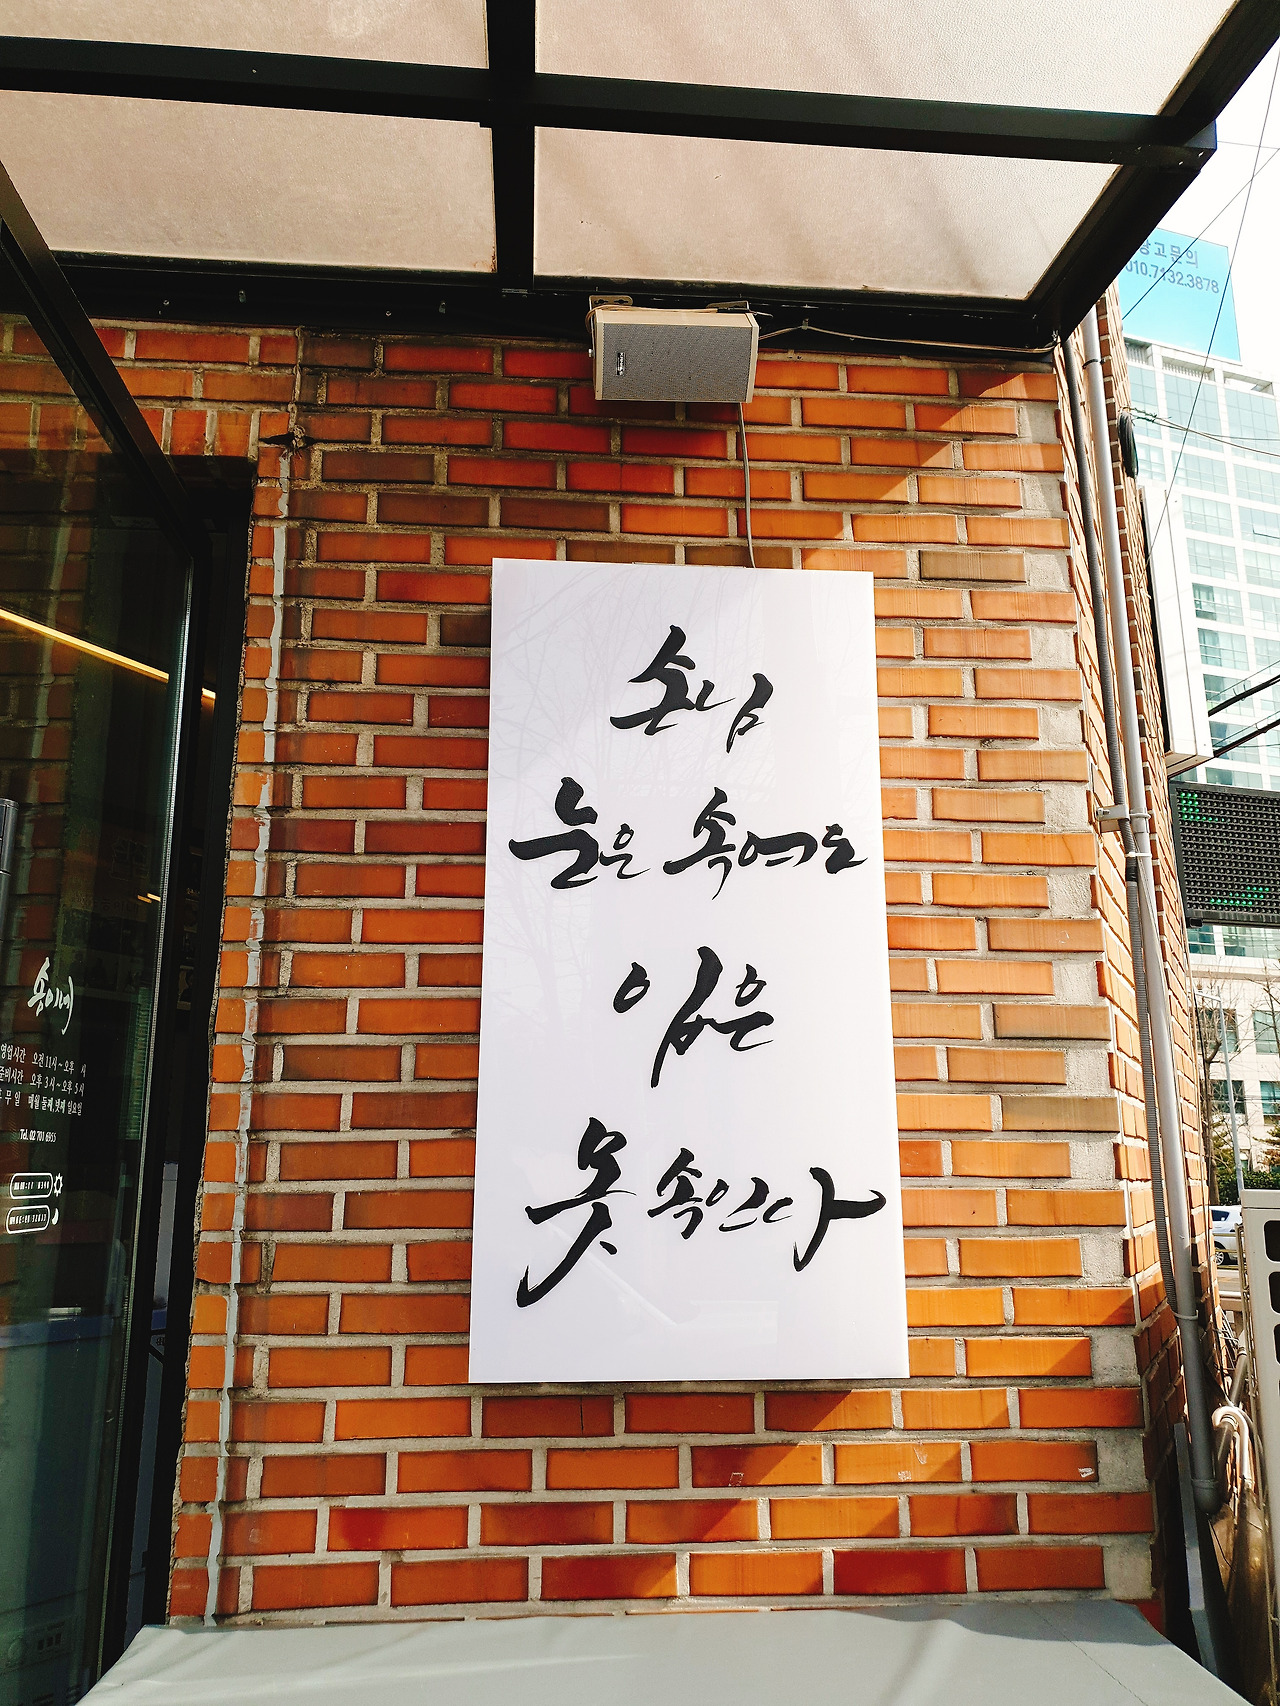 광고문의
010.7132.3878
손님
눈은 속여도
입은
못 속인다
송이네
영업시간 오전 11시 ~ 오후 시
준비시간 오후 3시 ~ 오후 5시
휴 무 일 매월 둘째, 넷째 일요일
Tel. 02 701 6955